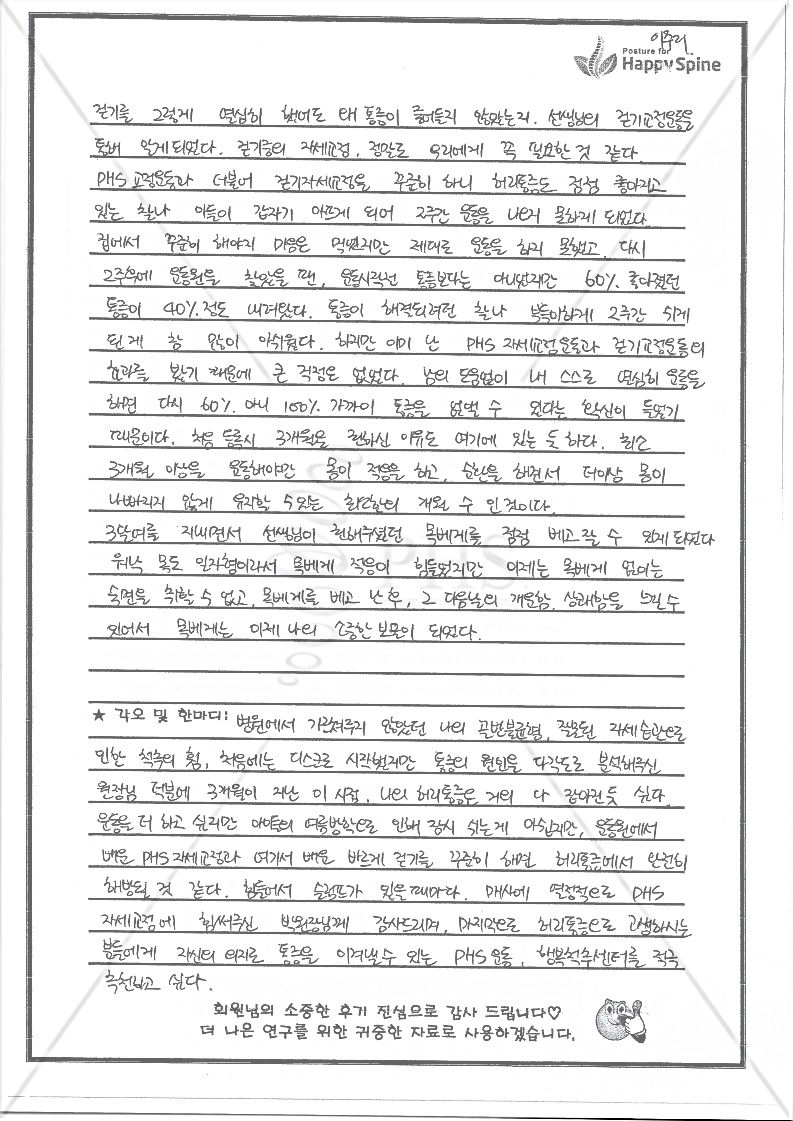 이주리
Posture for
Happy Spine
걷기를 그렇게 열심히 했어도 왜 통증이 줄어들지 않았는지. 선생님의 걷기교정운동을
통해 알게 되었다. 걷기중의 자세교정, 정말로 우리에게 꼭 필요한 것 같다.
PHS 교정운동과 더불어 걷기자세교정을 꾸준히 하니 허리통증도 점점 좋아지고
있는 찰나 아들이 갑자기 아프게 되어 2주간 운동을 나오지 못하게 되었다
집에서 꾸준히 해야지 마음은 먹었지만 제대로 운동을 하지 못했고, 다시
2주후에 운동원을 찾았을 땐, 운동시작전 통증보다는 아니었지만 60% 좋아졌던
통증이 40% 정도 내려왔다. 통증이 해결되려던 찰나 부득이하게 2주간 쉬게
된게 참 많이 아쉬웠다. 하지만 이미 난 PHS 자세교정운동과 걷기교정운동의
효과를 봤기 때문에 큰 걱정은 없었다. 남의 도움없이 내 스스로 열심히 운동을
하면 다시 60% 아니 100% 가까이 통증을 없앨 수 있다는 확신이 들었기
때문이다. 처음 등록시 3개월을 권하신 이유도 여기에 있는 듯 하다. 최소
3개월 이상을 운동해야만 몸이 적응을 하고, 순환을 해면서 더이상 몸이
나빠지지 않게 유지할 수있는 최소한의 개월 수 인것이다.
3달여를 지내면서 선생님이 권해주셨던 목베게를 점점 베고 잘 수 있게 되었다
워낙 목도 일자형이라서 목베게 적응이 힘들었지만 이제는 목베게 없이는
숙면을 취할 수 없고, 목베게를 베고 난 후, 그 다음날의 개운함, 상쾌함을 느낄 수
있어서 목베게는 이제 나의 소중한 보물이 되었다.
PHS
★ 각오 및 한마디: 병원에서 가르쳐주지 않았던 나의 골반불균형, 잘못된 자세습관으로
인한 척추의 휨, 처음에는 디스크로 시작했지만 통증의 원인을 다각도로 분석해주신
원장님 덕분에 3개월이 지난 이 시점, 나의 허리통증은 거의 다 잡아간듯 싶다.
운동을 더 하고 싶지만 아이들의 여름방학으로 인해 잠시 쉬는게 아쉽지만, 운동원에서
배운 PHS 자세교정과 여기서 배운 바르게 걷기를 꾸준히 하면 허리통증에서 완전히
해방될 것 같다. 힘들어서 슬럼프가 있을때마다. 매사에 열정적으로 PHS
자세교정에 힘써주신 박원장님께 감사드리며, 마지막으로 허리통증으로 고생하시는
분들에게 자신의 의지로 통증을 이겨낼 수 있는 PHS 운동, 행복척추센터를 적극
추천하고 싶다.
회원님의 소중한 후기 진심으로 감사 드립니다♡
더 나은 연구를 위한 귀중한 자료로 사용하겠습니다.